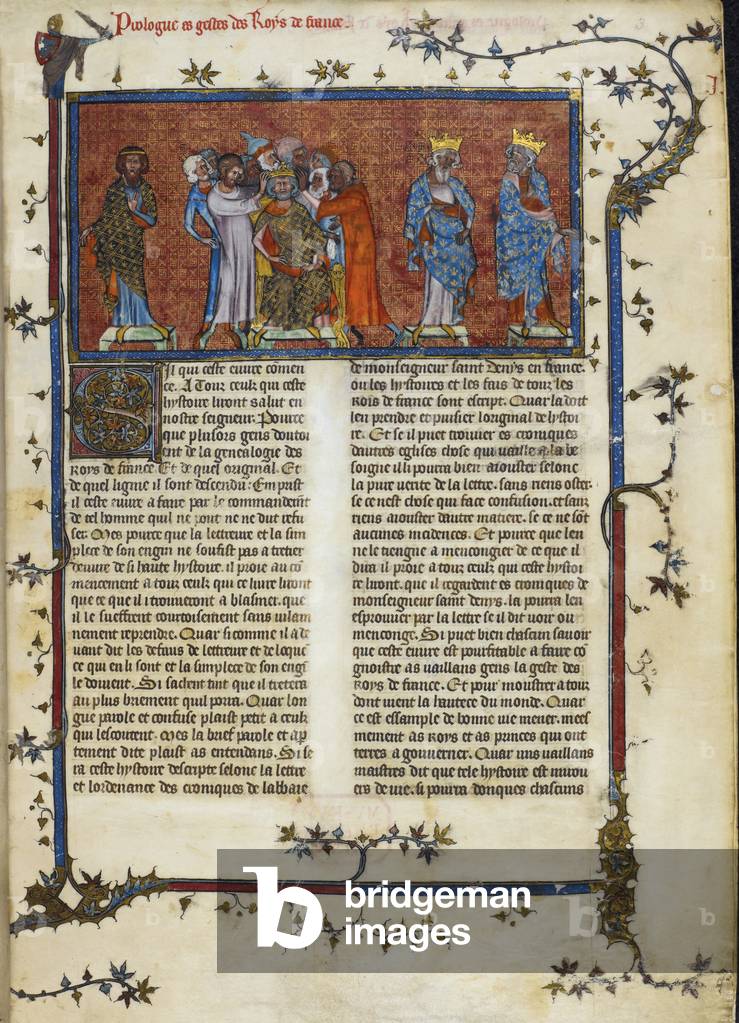 Prologue es gestes des Roys de france.
3
Cil qui ceste euure cõmen
ce. A Touz ceulz qui ceste
hystoire liront salut en
nostre seigneur. Pource
que plusors gens doutoi
ent de la genealogie des
Roys de france Et de quel original. Et
de quel ligne il sont descendu: Emprist
il ceste euure a faire par le commandemẽt
de tel homme quil ne pout ne ne dut refu
ser. Mes pource que la lettreure et la sim
plece de son engin ne souffist pas a tretier
deuure de si haute hystoire. il proie au cõ
mencement a touz ceulz qui ce liure liront
que ce que il i trouueront a blasmer. que
il le sueffrent courtoisement sanz uilain
nement reprendre. Quar si comme il a de
uant dit les defaus de lettreure et de loque
ce qui en li sont et la simplece de son engĩ
le doiuent. Si sachent tuit que il tretera
au plus briement quil porra. Quar lon
gue parole et confuse plaist petit a ceulz
qui lescoutent. Mes la brief parole et ap
tement dite plaist as entendans. Si se
ra ceste hystoire descripte selonc la lettre
et lordenance des croniques de labbaie
de monseigneur saint Denys en france.
ou les hystoires et les fais de touz les
Rois de france sont escript. Quar la doit
len prendre et puisier loriginal de hystoi
re. Et se il puet trouuer es croniques
dautres eglyses chose qui uaille a la be
soigne il i pourra bien aiouster selonc
la pure uerite de la lettre. sanz riens oster.
se ce nest chose qui face confusion. et sanz
riens aiouster dautre matiere. se ce ne sõt
aucunes incidences. Et pource que len
ne le tiengne a mencongier de ce que il
dira il proie a touz ceulz qui ceste hystoi
re liront. que il regardent es croniques de
monseigneur saint denys. la pourra len
esprouuer par la lettre se il dit uoir ou
menconge. Si puet bien chascun sauoir
que ceste euure est pourfitable a faire cõ
gnoistre as uaillans gens la geste des
Roys de france. Et pour moustrer a touz
dont uient la hautece du monde. Quar
ce est essample de bonne uie mener. mees
mement as Roys et as princes qui ont
terres a gouuerner. Quar uns uaillans
maistres dit que tele hystoire est mirou
ers de uie. si pourra donques chascuns
b bridgeman
images